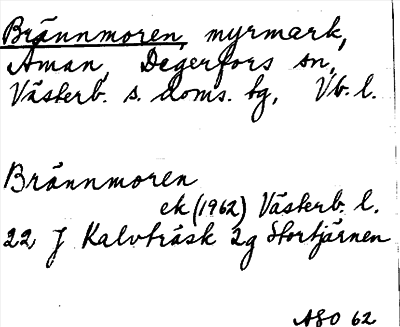 Brännmoren, myrmark,
Aman, Degerfors sn,
Västerb. s. doms. tg, Vb. l.
Brännmoren
ek (1962) Västerb. l.
22 J Kalvträsk 2g Stortjärnen
ASO 62